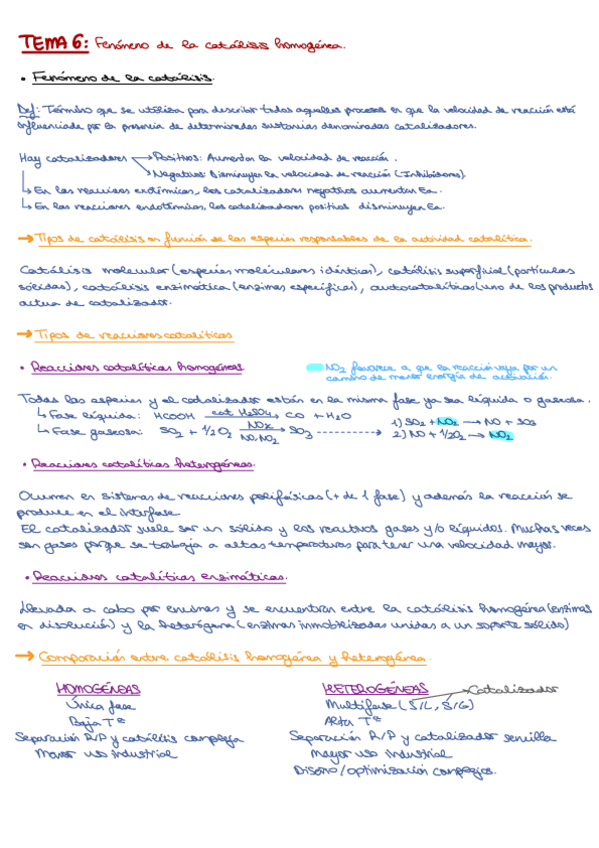 TEMA 6: Fenómeno de la catálisis homogénea.
• Fenómeno de la catálisis.
Def: Término que se utiliza para describir todos aquellos procesos en que la velocidad de reacción está
influenciada por la presencia de determinadas sustancias denominadas catalizadores.
Hay catalizadores → Positivos: Aumentan la velocidad de reacción.
↘ Negativos: Disminuyen la velocidad de reacción (Inhibidores)
↳ En las reacciones exotérmicas, los catalizadores negativos aumentan Ea.
↳ En las reacciones endotérmicas, los catalizadores positivos disminuyen Ea.
→ Tipos de catálisis en función de las especies responsables de la actividad catalítica.
Catálisis molecular (especies moléculares idénticas), catálisis superficial (partículas
sólidas), catálisis enzimática (enzimas específicas), autocatalíticas (uno de los productos
actúa de catalizador.
→ Tipos de reacciones catalíticas
• Reacciones catalíticas homogéneas
NO2 favorece a que la reacción vaya por un
camino de menor energía de activación.
Todas las especies y el catalizador están en la misma fase ya sea líquida o gaseosa.
↳ Fase líquida: HCOOH cat H2SO4 → CO + H2O
↳ Fase gaseosa: SO2 + 1/2 O2 NOx → NO, NO2 SO3 ----------→
1) SO2 + NO2 → NO + SO3
2) NO + 1/2O2 → NO2
• Reacciones catalíticas heterogéneas.
Ocurren en sistemas de reacciones polifásicas (+ de 1 fase) y además la reacción se
produce en el interfase.
El catalizador suele ser un sólido y los reactivos gases y/o líquidos. Muchas veces
son gases porque se trabaja a altas temperaturas para tener una velocidad mayor.
• Reacciones catalíticas enzimáticas.
Llevada a cabo por enzimas y se encuentran entre la catálisis homogénea (enzimas
en disolución) y la heterógena (enzimas inmobilizadas unidas a un soporte sólido)
→ Comparación entre catálisis homogénea y heterogénea.
HOMOGÉNEAS
Única fase
Baja Tª
Separación R/P y catálisis compleja
Menor uso industrial
HETEROGÉNEAS → Catalizador
Multifase (S/L, S/G)
Alta Tª
Separación R/P y catalizador sencilla
Mayor uso industrial
Diseño/optimización complejos.